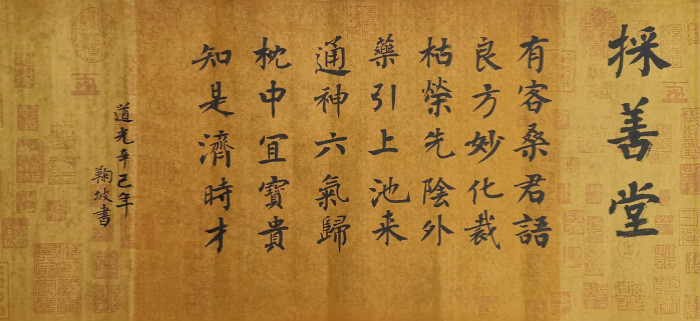 採善堂
有客桑君語
良方妙化裁
枯榮先陰外
藥引上池来
通神六氣歸
枕中宜寶貴
知是濟時才
道光辛巳年
鞠坡書